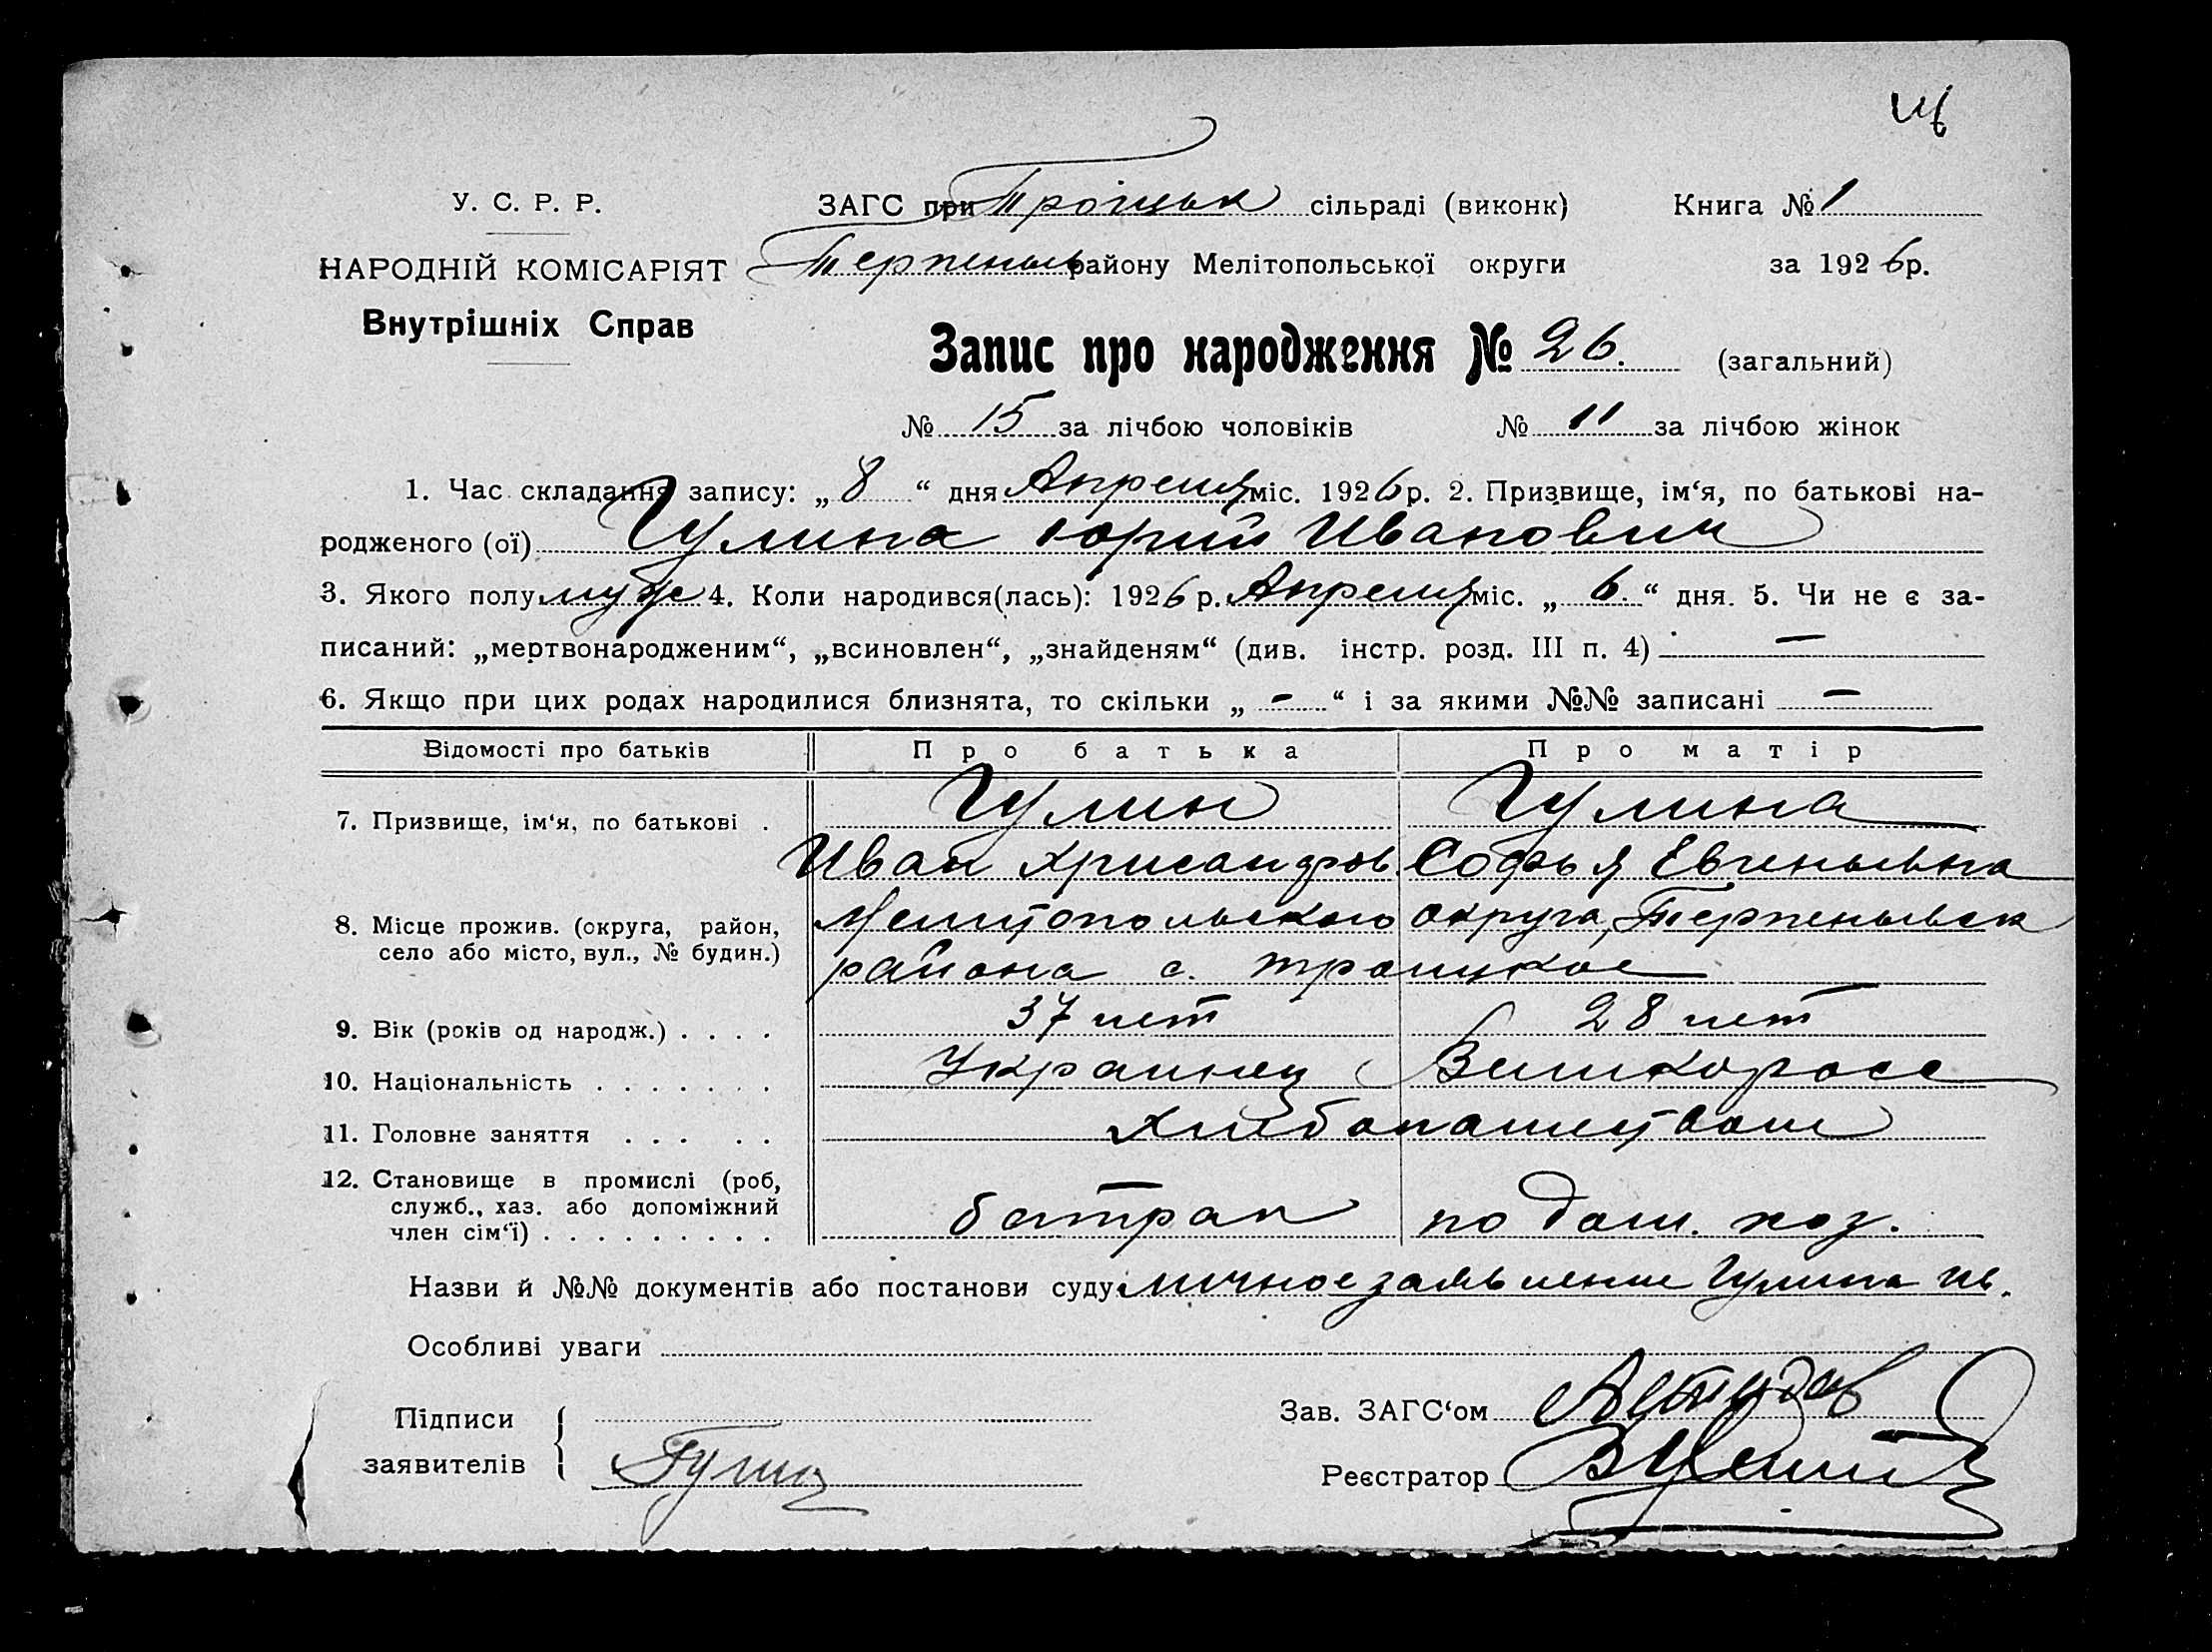 У. С. Р. Р.
НАРОДНІЙ КОМІСАРІЯТ
Внутрішніх Справ
ЗАГС при Троицьк сільраді (виконк) Книга № 1
Терпеньев району Мелітопольської округи за 1926 р.
Запис про народження № 26. (загальний)
№ 15 за лічбою чоловіків № 11 за лічбою жінок
1. Час складання запису: „8“ дня Апреля міс. 1926 р. 2. Призвище, ім‘я, по батькові на-
родженого (ої) Гулина Юрий Иванович
3. Якого полу муж 4. Коли народився(лась): 1926 р. Апреля міс. „6.“ дня. 5. Чи не є за-
писаний: „мертвонародженим“, „всиновлен“, „знайденям“ (див. інстр. розд. III п. 4) —
6. Якщо при цих родах народилися близнята, то скільки „-“ і за якими №№ записані —
Відомості про батьків Про батька Про матір
7. Призвище, ім‘я, по батькові . Гулин Гулина
Иван Хрисандров. Софья Евгеньевна
8. Місце прожив. (округа, район, село або місто, вул., № будин.) Мелитопольского округа, Терпеньевск
района с. Троицкое
9. Вік (років од народж.) . . . . 37 лет 28 лет
10. Національність . . . . . . . Украинец Великоросс
11. Головне заняття . . . . . Хлебопашеством
12. Становище в промислі (роб,
служб., хаз. або допоміжний
член сім‘ї) . . . . . . . . . батрак по дом. хоз.
Назви й №№ документів або постанови суду: личное заявление Гулина Ив.
Особливі уваги
Підписи
заявителів Гулин
Зав. ЗАГС‘ом
Реєстратор